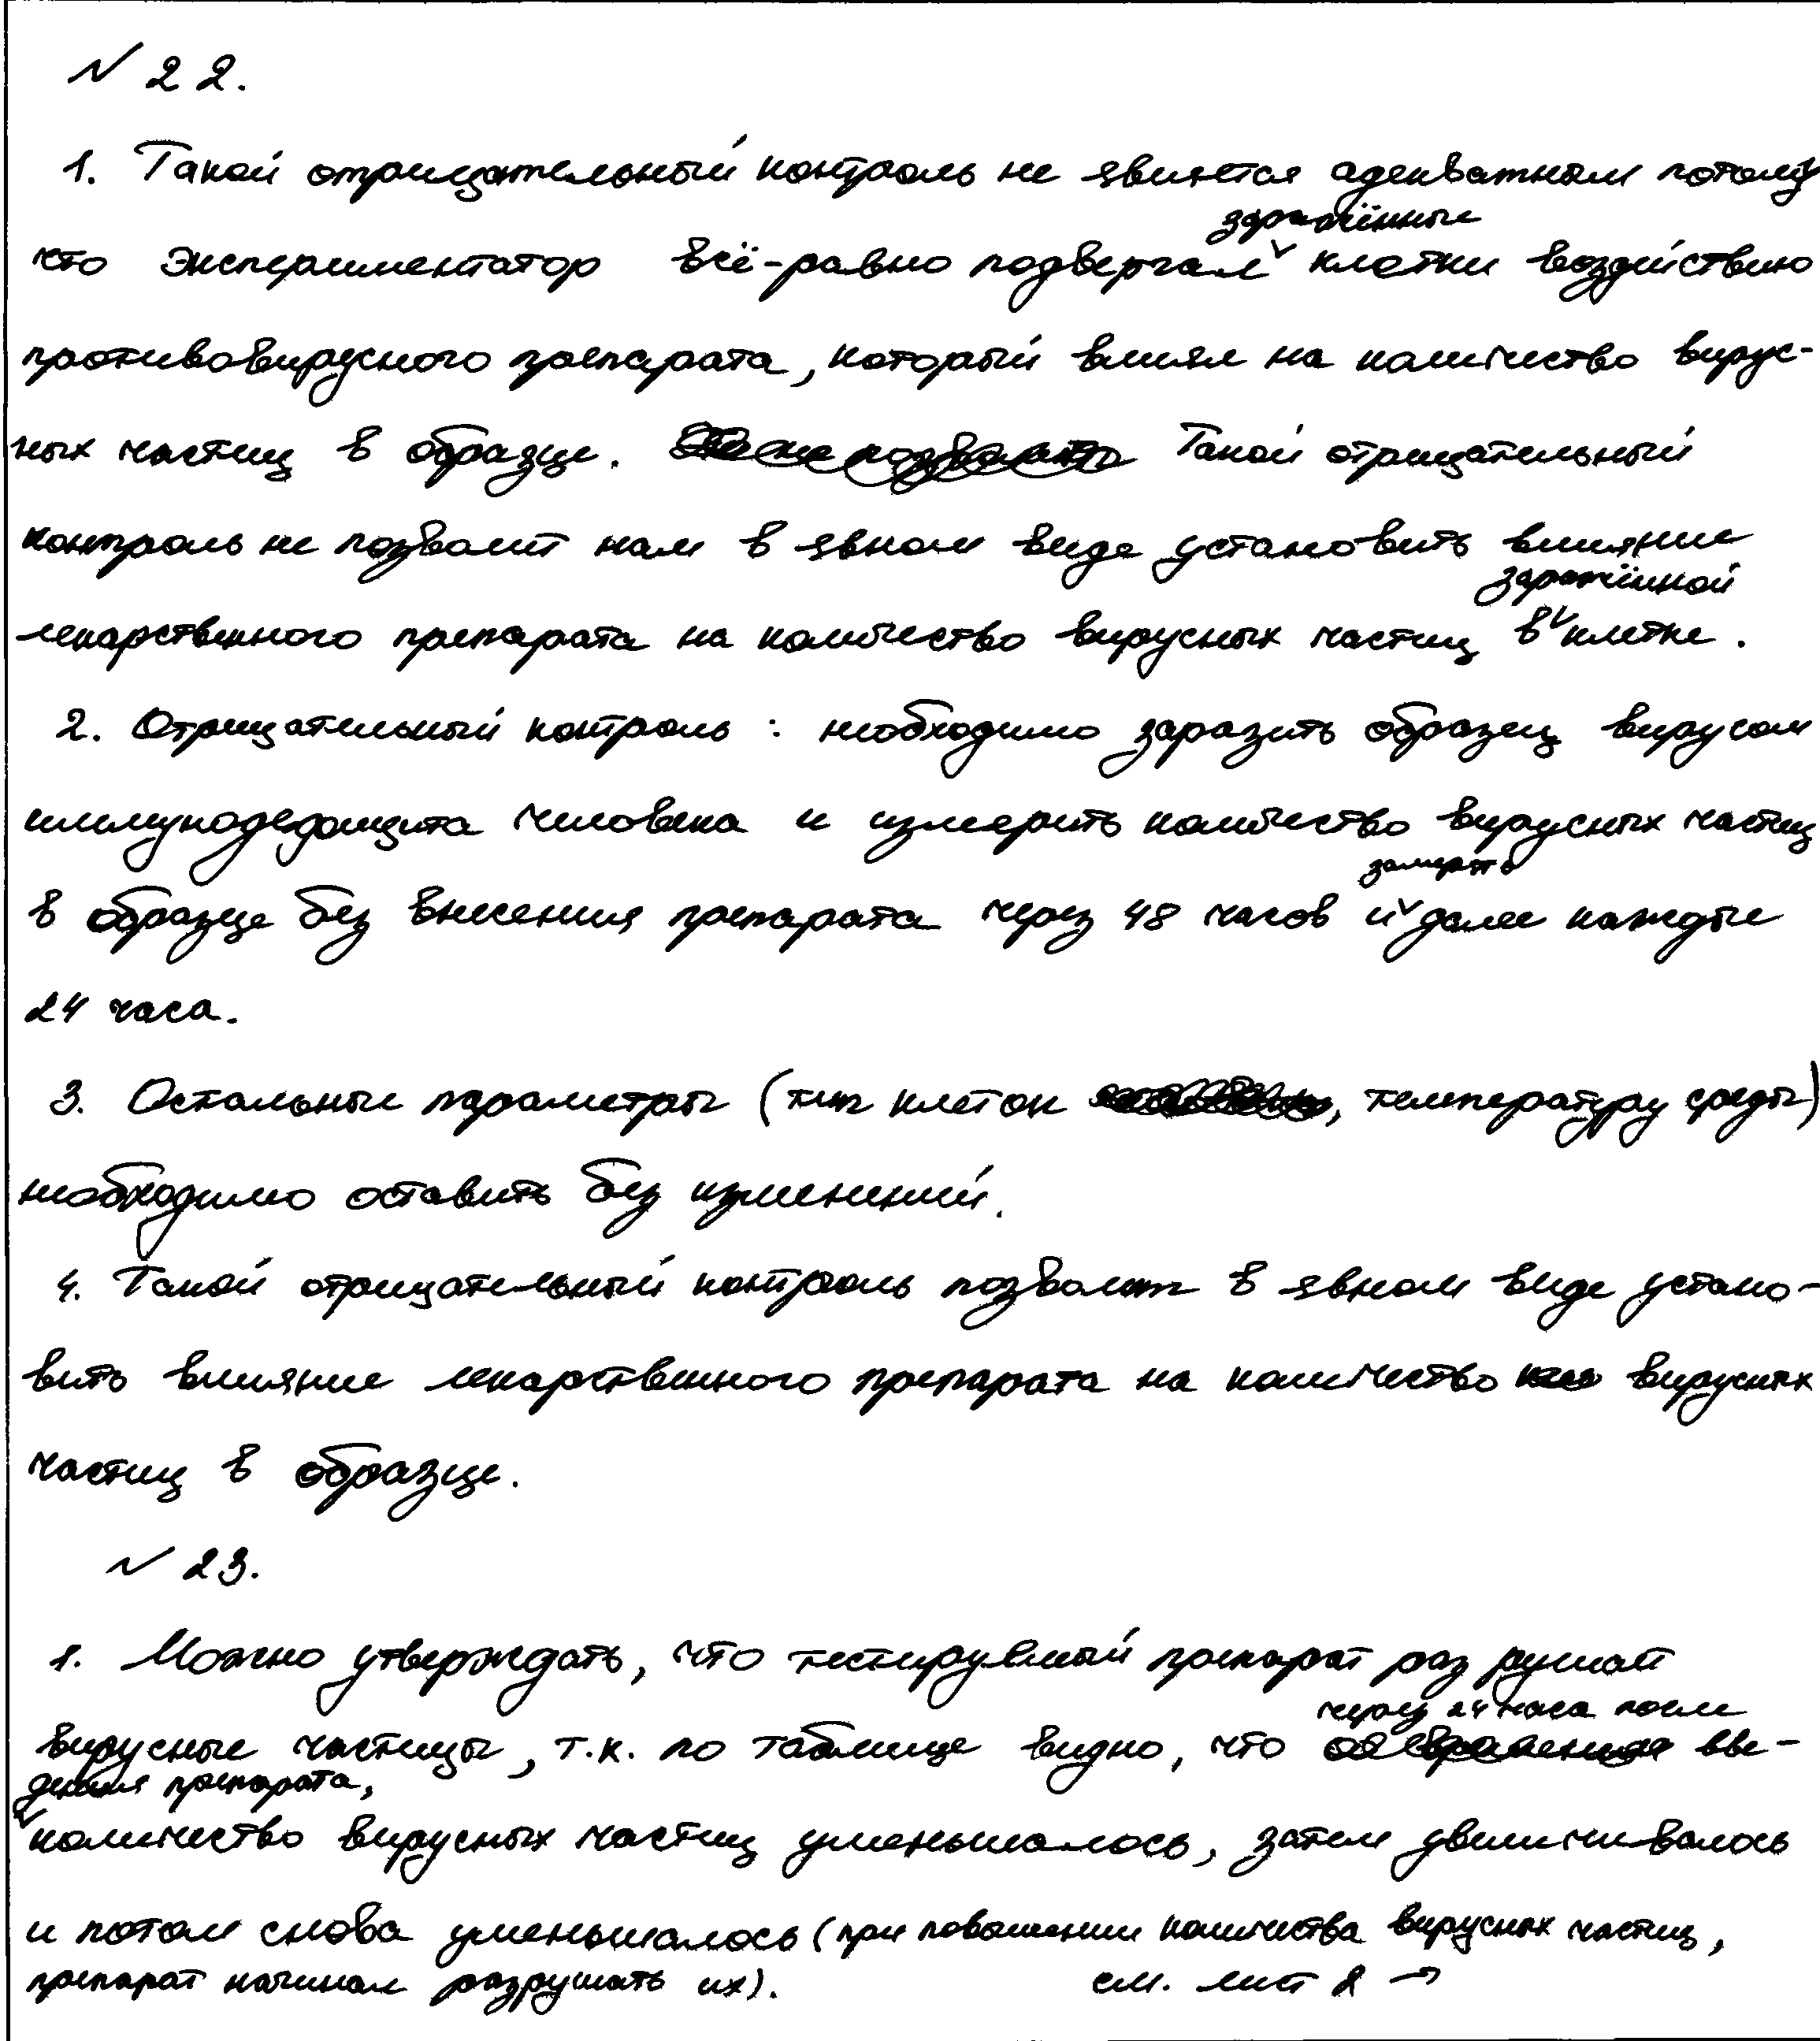 № 22.
1. Такой отрицательный контроль не является адекватным потому
что экспериментатор всё-равно подвергал заражённые клетки воздействию
противовирусного препарата, который влиял на количество вирус-
ных частиц в образце. Такой отрицательный
контроль не позволит нам в явном виде установить влияние
лекарственного препарата на количество вирусных частиц в заражённой клетке.
2. Отрицательный контроль: необходимо заразить образец вирусом
иммунодефицита человека и измерить количество вирусных частиц
в образце без внесения препарата через 48 часов и замерять далее каждые
24 часа.
3. Остальные параметры (тип клеток, температуру среды)
необходимо оставить без изменений.
4. Такой отрицательный контроль позволит в явном виде устано-
вить влияние лекарственного препарата на количество вирусных
частиц в образце.
№ 23.
1. Можно утверждать, что тестируемый препарат разрушает
вирусные частицы, т.к. по таблице видно, что через 24 часа после вве-
дения препарата,
количество вирусных частиц уменьшалось, затем увеличивалось
и потом снова уменьшалось (при повышении количества вирусных частиц,
препарат начинал разрушать их). см. лист 2 →